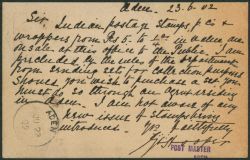 Aden. 23.6.02
Sir,
Indian postage Stamps, p cs &
wrappers from Rs 5. to in aden are
on sale at this office to the Public. I am
precluded by the rules of the department
from sending sets for Collection purposes
Should you wish to purchase a set you
must do so through an agent residing
in Aden. I am not aware of any
new issue of Stamps being
introduced. Yrs faithfully
ADEN
POST MASTER
ADEN